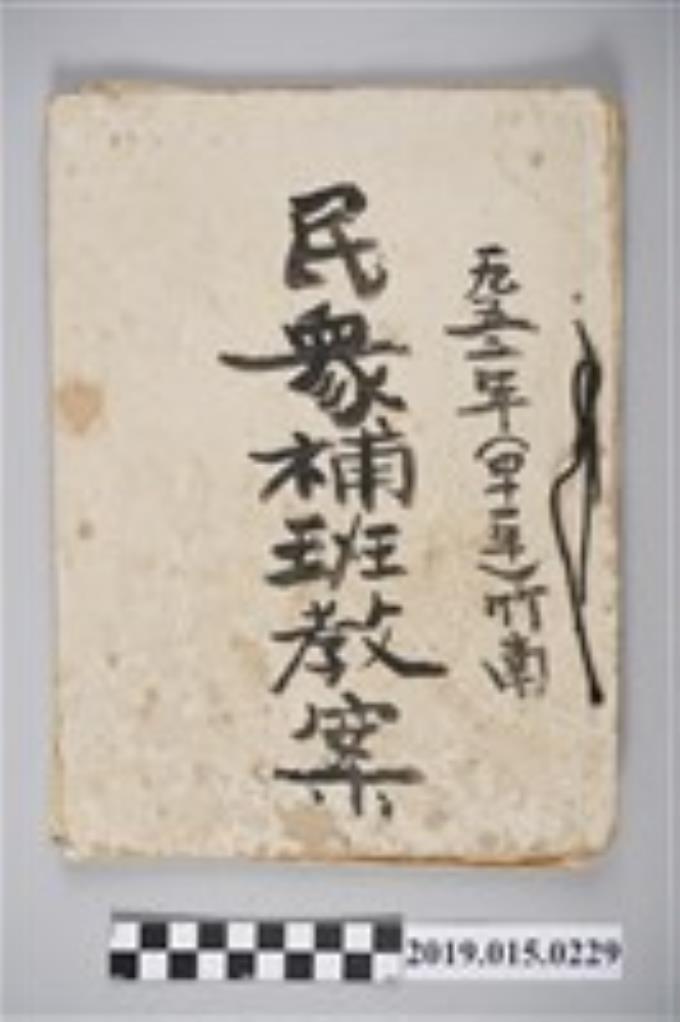 一九五二年(四十一年)竹南
民衆補班教案
2019.015.0229